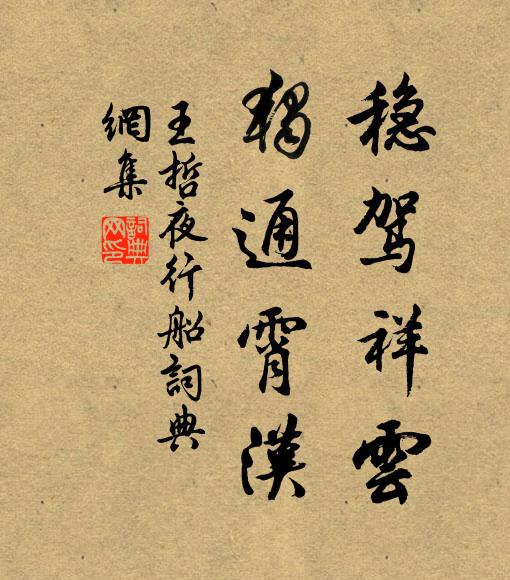 穩駕祥雲
獨通霄漢
王哲夜行船詞典
網集
詞典
网印